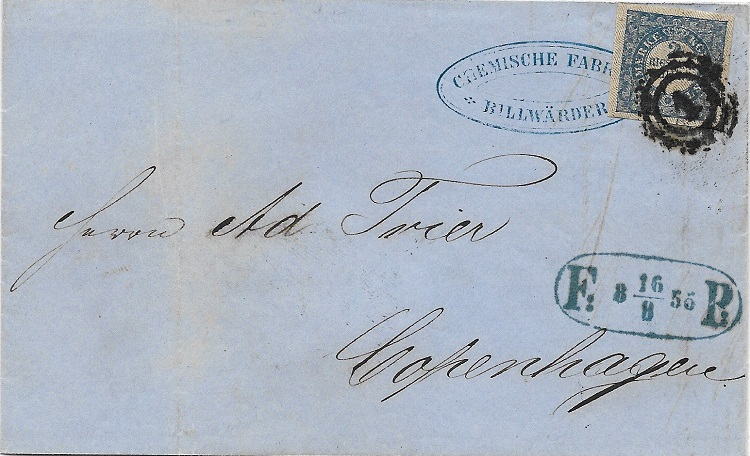 CHEMISCHE FABR
BILLWÄRDER
Herrn Ad Trier
Copenhagen
F: 8 16/9 55 P: